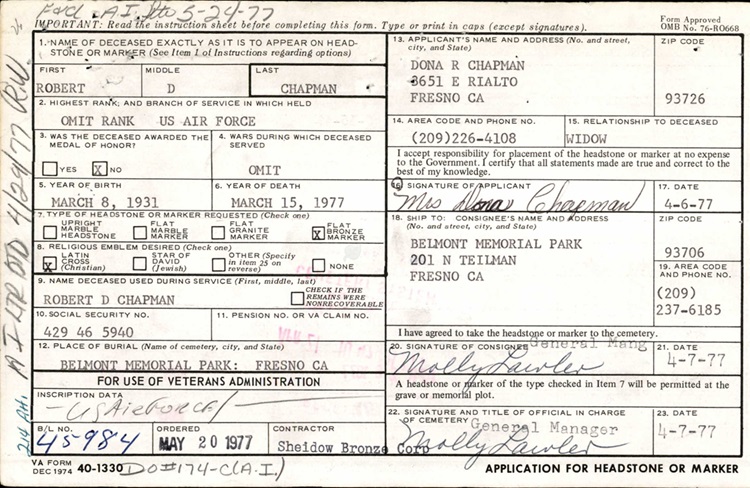 Ford - A.I. Ltr 5-24-77
IMPORTANT: Read the instruction sheet before completing this form. Type or print in caps (except signatures).
Form Approved
OMB No. 76-RO668
1. NAME OF DECEASED EXACTLY AS IT IS TO APPEAR ON HEAD-
STONE OR MARKER (See Item 1 of Instructions regarding options)
FIRST MIDDLE LAST
ROBERT D CHAPMAN
2. HIGHEST RANK; AND BRANCH OF SERVICE IN WHICH HELD
OMIT RANK US AIR FORCE
3. WAS THE DECEASED AWARDED THE
MEDAL OF HONOR?
YES X NO
4. WARS DURING WHICH DECEASED
SERVED
OMIT
5. YEAR OF BIRTH
MARCH 8, 1931
6. YEAR OF DEATH
MARCH 15, 1977
7. TYPE OF HEADSTONE OR MARKER REQUESTED (Check one)
UPRIGHT MARBLE HEADSTONE
FLAT MARBLE MARKER
FLAT GRANITE MARKER
X FLAT BRONZE MARKER
8. RELIGIOUS EMBLEM DESIRED (Check one)
X LATIN CROSS (Christian)
STAR OF DAVID (Jewish)
OTHER (Specify in item 25 on reverse)
NONE
9. NAME DECEASED USED DURING SERVICE (First, middle, last)
ROBERT D CHAPMAN
CHECK IF THE REMAINS WERE NONRECOVERABLE
10. SOCIAL SECURITY NO.
429 46 5940
11. PENSION NO. OR VA CLAIM NO.
12. PLACE OF BURIAL (Name of cemetery, city, and State)
BELMONT MEMORIAL PARK: FRESNO CA
FOR USE OF VETERANS ADMINISTRATION
INSCRIPTION DATA
- US AIR FORCE /
B/L NO.
45984
ORDERED
MAY 20 1977
CONTRACTOR
Sheidow Bronze Corp
13. APPLICANT'S NAME AND ADDRESS (No. and street,
city, and State)
ZIP CODE
DONA R CHAPMAN
3651 E RIALTO
FRESNO CA 93726
14. AREA CODE AND PHONE NO.
(209)226-4108
15. RELATIONSHIP TO DECEASED
WIDOW
I accept responsibility for placement of the headstone or marker at no expense
to the Government. I certify that all statements made are true and correct to the
best of my knowledge.
16. SIGNATURE OF APPLICANT
Mrs Dona Chapman
17. DATE
4-6-77
18. SHIP TO: CONSIGNEE'S NAME AND ADDRESS
(No. and street, city, and State)
ZIP CODE
BELMONT MEMORIAL PARK 93706
201 N TEILMAN
FRESNO CA
19. AREA CODE
AND PHONE NO.
(209)
237-6185
I have agreed to take the headstone or marker to the cemetery.
20. SIGNATURE OF CONSIGNEE
General Mang
Molly Lawler
21. DATE
4-7-77
A headstone or marker of the type checked in Item 7 will be permitted at the
grave or memorial plot.
22. SIGNATURE AND TITLE OF OFFICIAL IN CHARGE
OF CEMETERY
General Manager
Molly Lawler
23. DATE
4-7-77
VA FORM
DEC 1974 40-1330
DO#174-C(A.I.)
APPLICATION FOR HEADSTONE OR MARKER
A I LTR DTD 4/29/77 RW